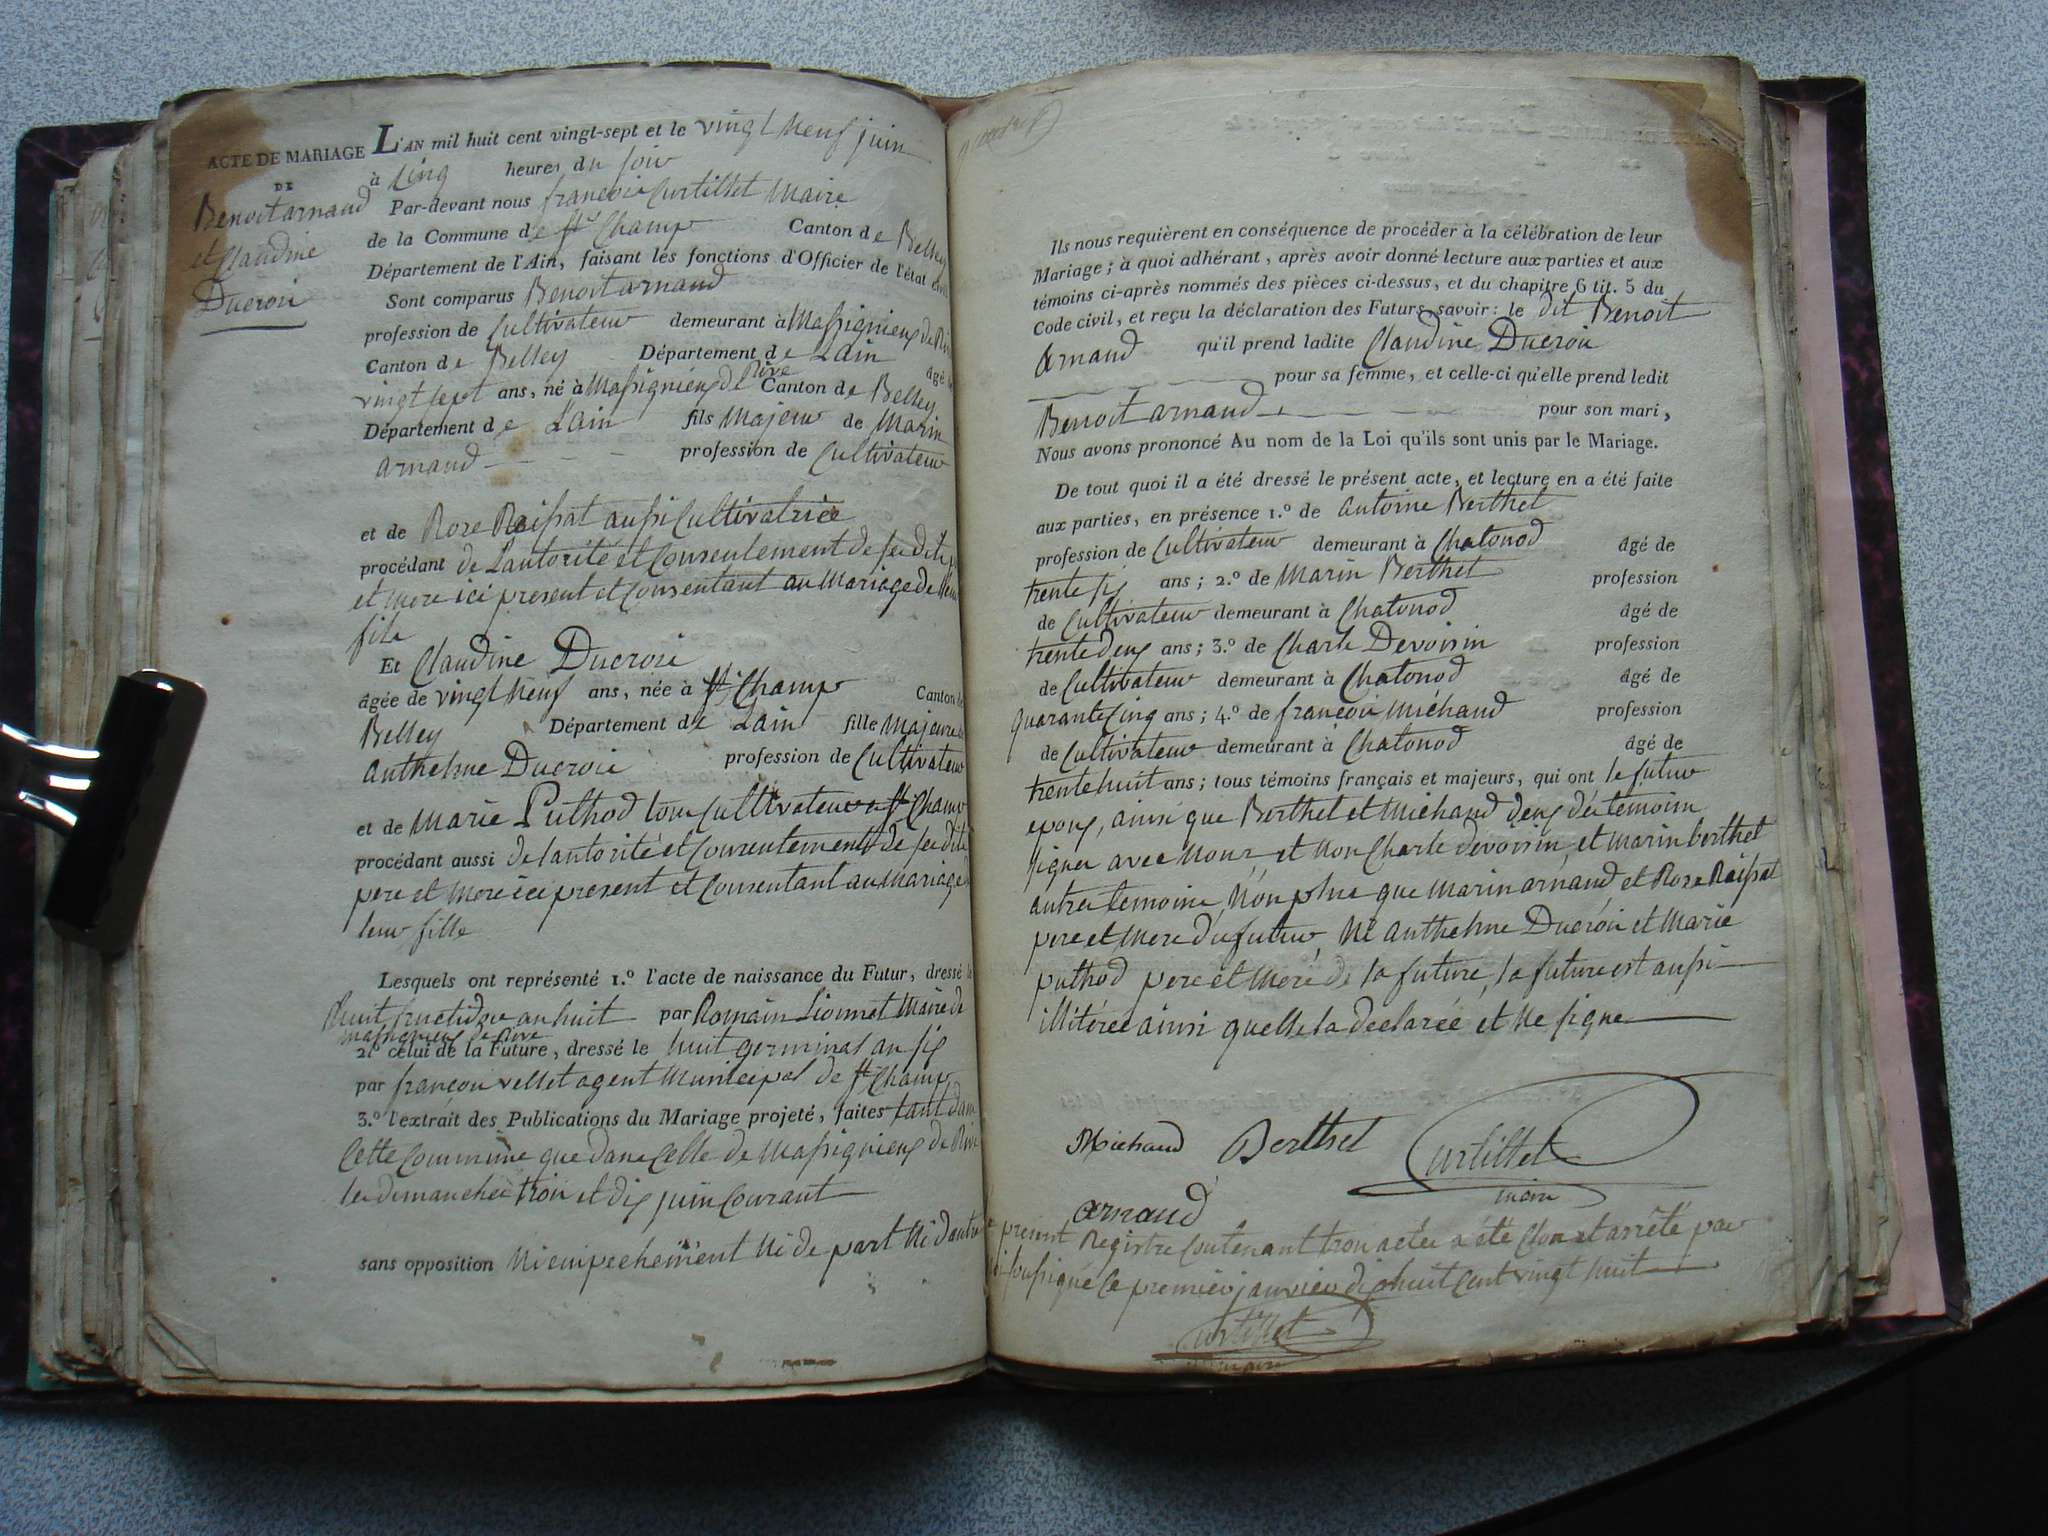 ACTE DE MARIAGE
DE
Benoit arnaud
et Claudine
Ducroix
L'AN mil huit cent vingt-sept et le vingt neuf juin
à Cinq heures du soir
Par-devant nous françois Curtillet Maire
de la Commune de St Champ Canton de Belley
Département de l'Ain, faisant les fonctions d'Officier de l'état civil
Sont comparus Benoit arnaud
profession de Cultivateur demeurant à Massignieux de Rive
Canton de Belley Département de Lain âgé de
vingt sept ans, né à Massignieux de Rive Canton de Belley
Département de Lain fils Majeur de Marin
arnaud profession de Cultivateur
et de Roze Raissat aussi Cultivatrice
procédant de L'autorité et Consentement de ses dits père
et mere ici present et Consentant au Mariage de leur
fils
Et Claudine Ducroix
âgée de vingt neuf ans, née à St Champ Canton de
Belley Département de Lain fille Majeure de
anthelme Ducroix profession de Cultivateur
et de Marie Puthod tous Cultivateurs a St Champ
procédant aussi de lautorité et Consentement de ses dits
pere et Mere ici present et Consentant au Mariage de
leur fille
Lesquels ont représenté 1.º l'acte de naissance du Futur, dressé le
huit fructidor an huit par Romain Lionnet Maire de
Massignieux de Rive
2.º celui de la Future, dressé le huit germinal an six
par françois vellet agent Municipal de St Champ
3.º l'extrait des Publications du Mariage projeté, faites tant dans
Cette Commune que dans Celle de Massignieux de Rive
les dimanches trois et dix juin Courant
sans opposition Ni empechement Ni de part Ni dautre
Ils nous requièrent en conséquence de procéder à la célébration de leur
Mariage ; à quoi adhérant, après avoir donné lecture aux parties et aux
témoins ci-après nommés des pièces ci-dessus, et du chapitre 6 tit. 5 du
Code civil, et reçu la déclaration des Futurs, savoir : le dit Benoit
Arnaud qu'il prend ladite Claudine Ducroix
pour sa femme, et celle-ci qu'elle prend ledit
Benoit arnaud pour son mari,
Nous avons prononcé Au nom de la Loi qu'ils sont unis par le Mariage.
De tout quoi il a été dressé le présent acte, et lecture en a été faite
aux parties, en présence 1.º de Antoine Berthet
profession de Cultivateur demeurant à Chatonod âgé de
trente six ans ; 2.º de Marin Berthet profession
de Cultivateur demeurant à Chatonod âgé de
trente deux ans ; 3.º de Charle Devoisin profession
de Cultivateur demeurant à Chatonod âgé de
quarante Cinq ans ; 4.º de françois Michaud profession
de Cultivateur demeurant à Chatonod âgé de
trente huit ans ; tous témoins français et majeurs, qui ont le futur
epoux, ainsi que Berthet et Michaud deux des témoins
signer avec Nous et Non Charle devoisin, et Marin berthet
autres temoins, Non plus que Marin arnaud et Roze Raissat
pere et Mere du futur, Ni Anthelme Ducroix et Marie
puthod pere et Mere de la future, la future est aussi
illiterée ainsi quelle la declarée et Ne signe
Michaud Berthet Curtillet
maire
arnaud
Le present Registre Contenant trois actes a été Clos et arrêté par
soussigné Ce premier janvier dixhuit Cent vingt huit
Curtillet
maire